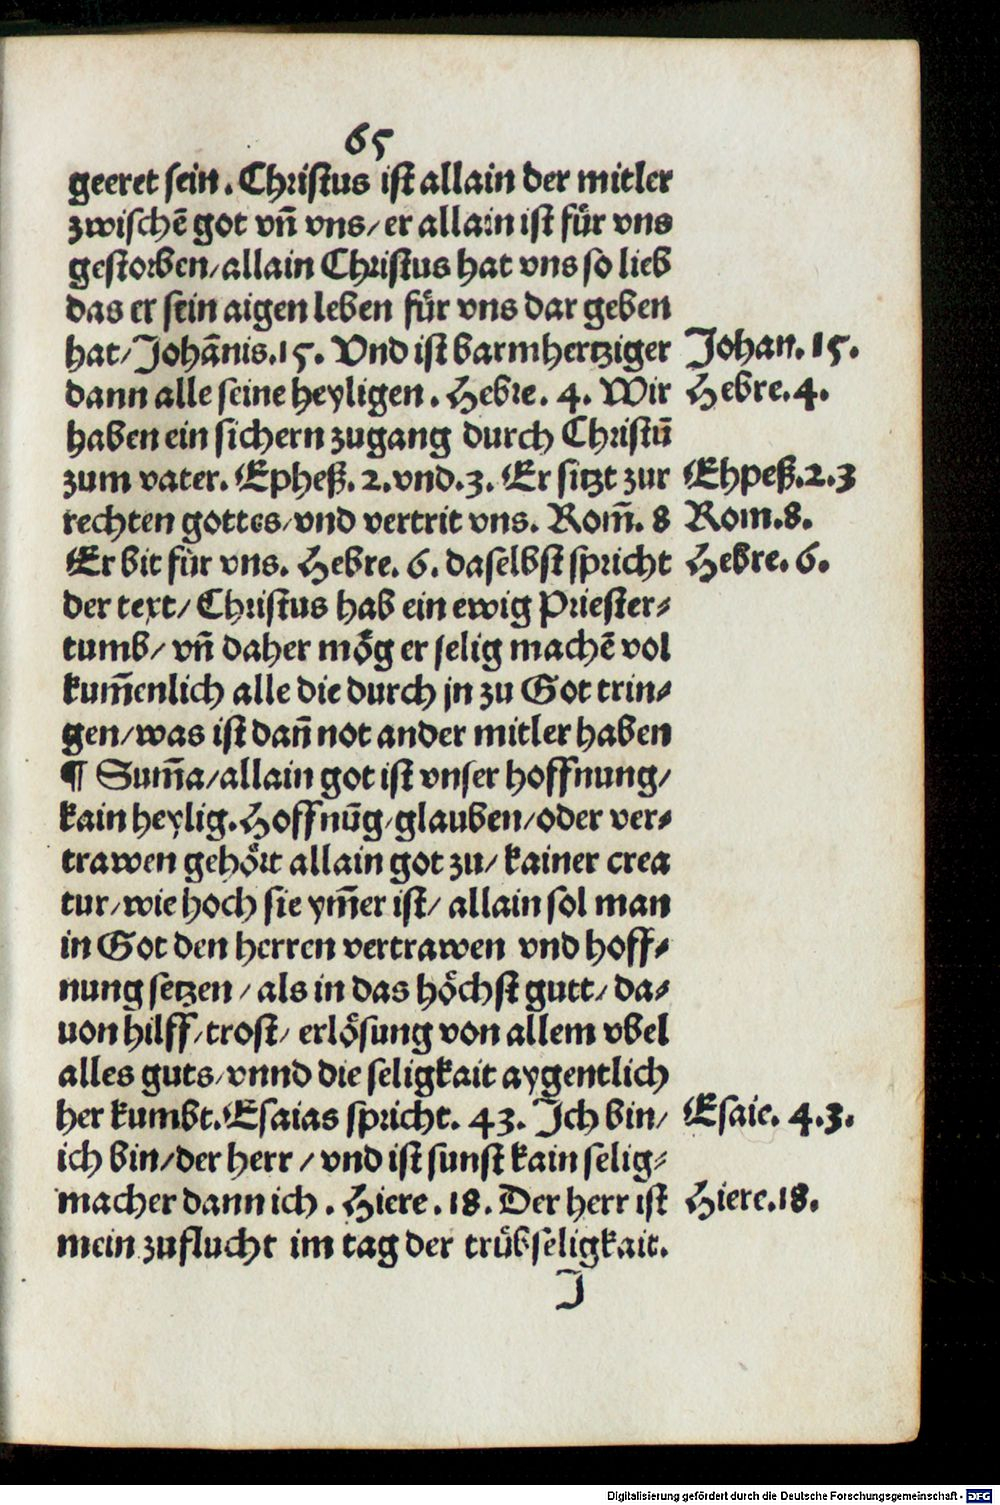 65
geeret sein. Christus ist allain der mitler
zwischē got vñ vns/ er allain ist fůr vns
gestorben/ allain Christus hat vns so lieb
das er sein aigen leben fůr vns dar geben
hat/ Johānis.15. Vnd ist barmhertziger Johan. 15.
dann alle seine heyligen. Hebre. 4. Wir Hebre.4.
haben ein sichern zugang durch Christū
zum vater. Epheß. 2. vnd.3. Er sitzt zur Ehpeß.2.3
rechten gottes/ vnd vertrit vns. Rom̄. 8 Rom.8.
Er bit fůr vns. Hebre. 6. daselbst spricht Hebre. 6.
der text/ Christus hab ein ewig Priester⸗
tumb/ vñ daher mög er selig machē vol
kum̄enlich alle die durch jn zu Got trin⸗
gen/ was ist dañ not ander mitler haben
¶ Sum̄a/ allain got ist vnser hoffnung/
kain heylig. Hoffnūg/ glauben/ oder ver⸗
trawen gehört allain got zu/ kainer crea
tur/ wie hoch sie ym̄er ist/ allain sol man
in Got den herren vertrawen vnd hoff⸗
nung setzen/ als in das höchst gutt/ da⸗
uon hilff/ trost/ erlösung von allem vbel
alles guts/ vnnd die seligkait aygentlich
her kumbt. Esaias spricht. 43. Ich bin/ Esaie. 4.3.
ich bin/ der herr/ vnd ist sunst kain selig⸗
macher dann ich. Hiere. 18. Der herr ist Hiere.18.
mein zuflucht im tag der trůbseligkait.
J
Digitalisierung gefördert durch die Deutsche Forschungsgemeinschaft - DFG